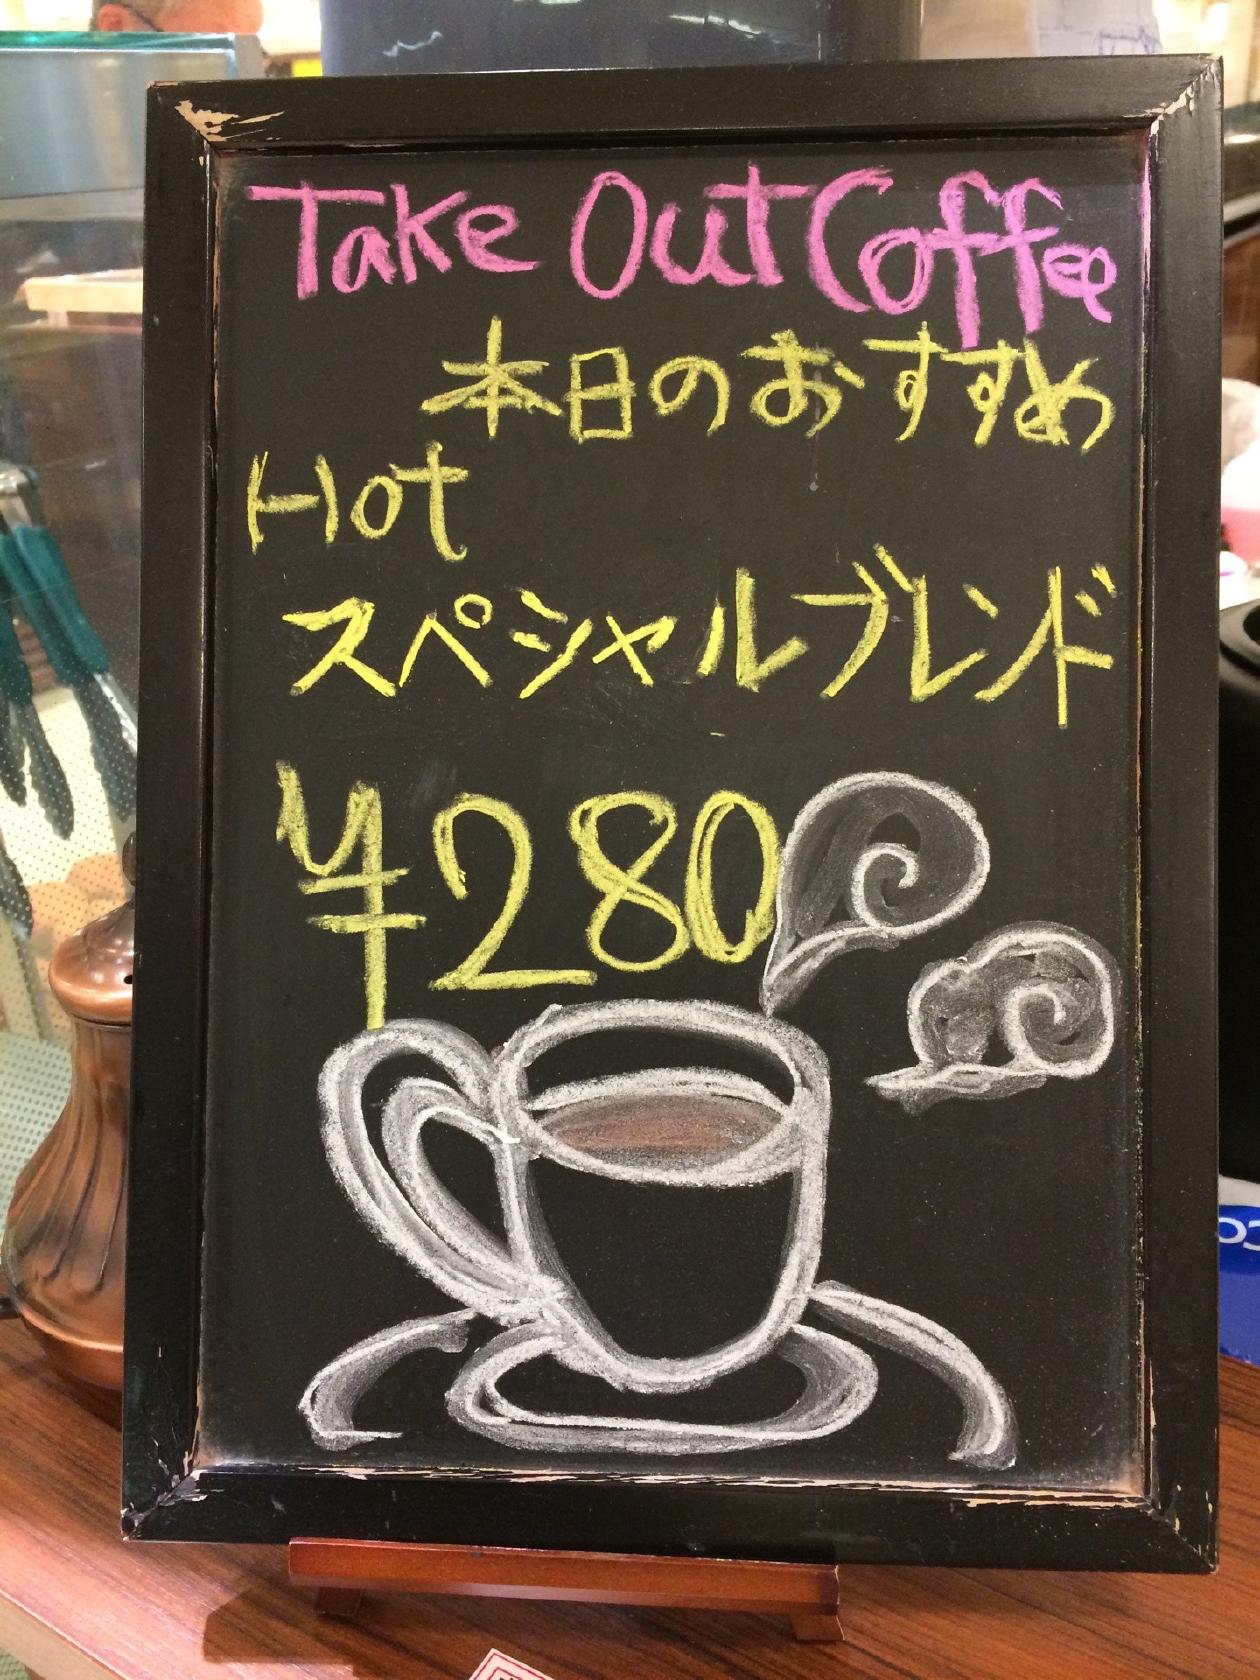 Take Out Coffee
本日のおすすめ
Hot
スペシャルブレンド
¥280